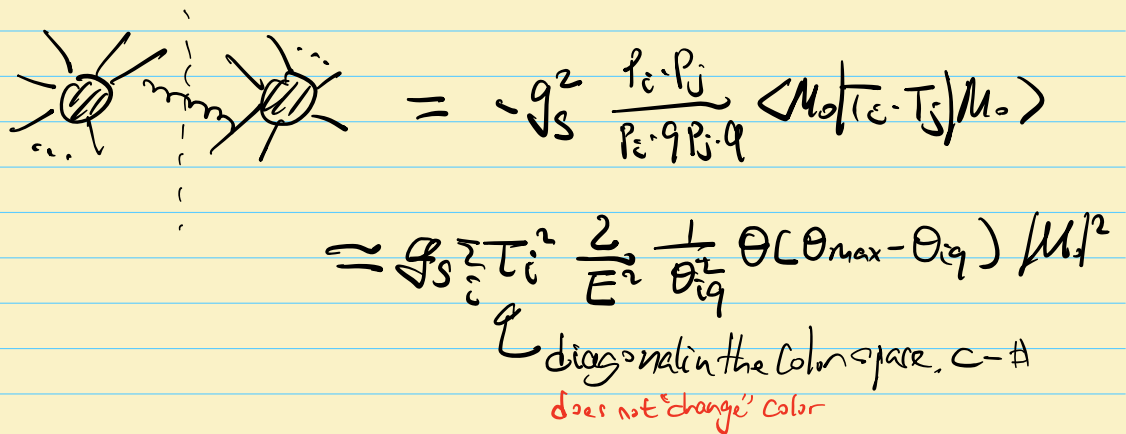 = -g_s^2 \frac{P_i \cdot P_j}{P_i \cdot q P_j \cdot q} <M_0|T_i \cdot T_j|M_0>
≈ g_s \sum_i T_i^2 \frac{2}{E^2} \frac{1}{θ_{iq}^2} Θ(θ_{max} - θ_{iq}) |M_0|^2
diagonal in the color space. c-#
does not "change" color